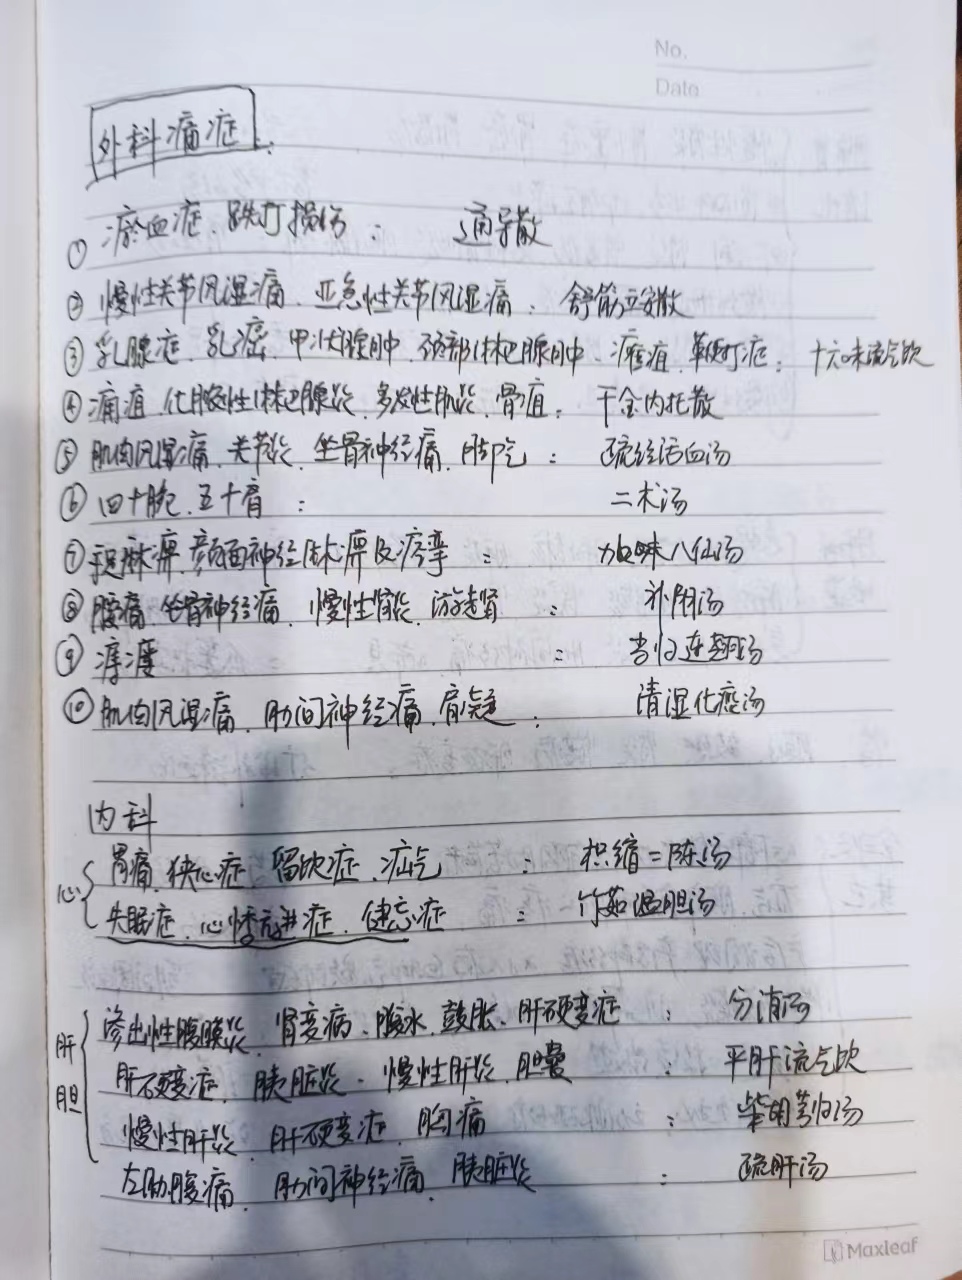 No.
Date
外科痛症:
① 瘀血症、跌打损伤: 通导散
② 慢性关节风湿痛、亚急性关节风湿痛、舒筋立安散
③ 乳腺症、乳癌、甲状腺肿、颈部淋巴腺肿、瘰疽、 : 十六味流气饮
④ 痈疽、化脓性淋巴腺炎、多发性肌炎、骨疽: 千金内托散
⑤ 肌肉风湿痛、关节炎、坐骨神经痛、脚气: 疏经活血汤
⑥ 四十腕、五十肩: 二术汤
⑦ 麻痹、颜面神经麻痹及痉挛: 加味八仙汤
⑧ 腰痛、坐骨神经痛、慢性肾炎、游走肾: 补阴汤
⑨ : 当归连翘汤
⑩ 肌肉风湿痛、肋间神经痛、肩凝: 清湿化痰汤
内科
心 胃痛、狭心症、留饮症、疝气: 枳缩二陈汤
失眠症、心悸亢进症、健忘症: 竹茹温胆汤
肝胆 渗出性腹膜炎、肾变病、腹水、鼓胀、肝硬变症: 分消汤
肝硬变症、胰脏炎、慢性肝炎、胆囊: 平肝流气饮
慢性肝炎、肝硬变症、胸痛: 柴胡芎归汤
左肋腹痛、肋间神经痛、胰脏炎: 疏肝汤
Maxleaf